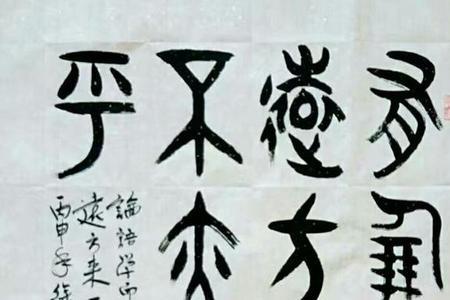 有朋
遠方
不亦
乎
論語学而
遠方来
丙申